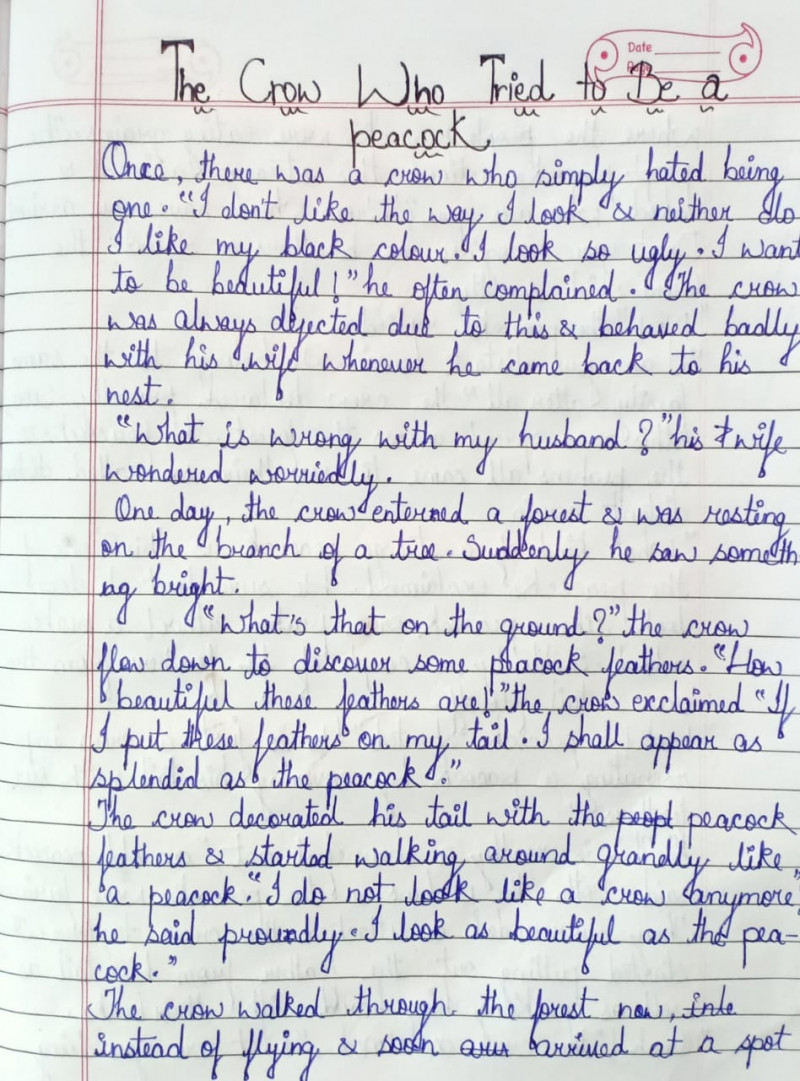 Date
The Crow Who Tried to Be a
peacock
Once, there was a crow who simply hated being
one. "I don't like the way I look & neither do
I like my black colour. I look so ugly. I want
to be beautiful!" he often complained. The crow
was always dejected due to this & behaved badly
with his wife whenever he came back to his
nest.
"What is wrong with my husband?" his wife
wondered worriedly.
One day, the crow entered a forest & was resting
on the branch of a tree. Suddenly he saw someth
ng bright.
"What's that on the ground?" the crow
flew down to discover some peacock feathers. "How
beautiful these feathers are!" the crow exclaimed "If
I put these feathers on my tail. I shall appear as
splendid as the peacock."
The crow decorated his tail with the peopt peacock
feathers & started walking around grandly like
a peacock. "I do not look like a crow anymore"
he said proundly. I look as beautiful as the pea-
cock."
The crow walked through the forest now, inte
instead of flying & soon arrived at a spot